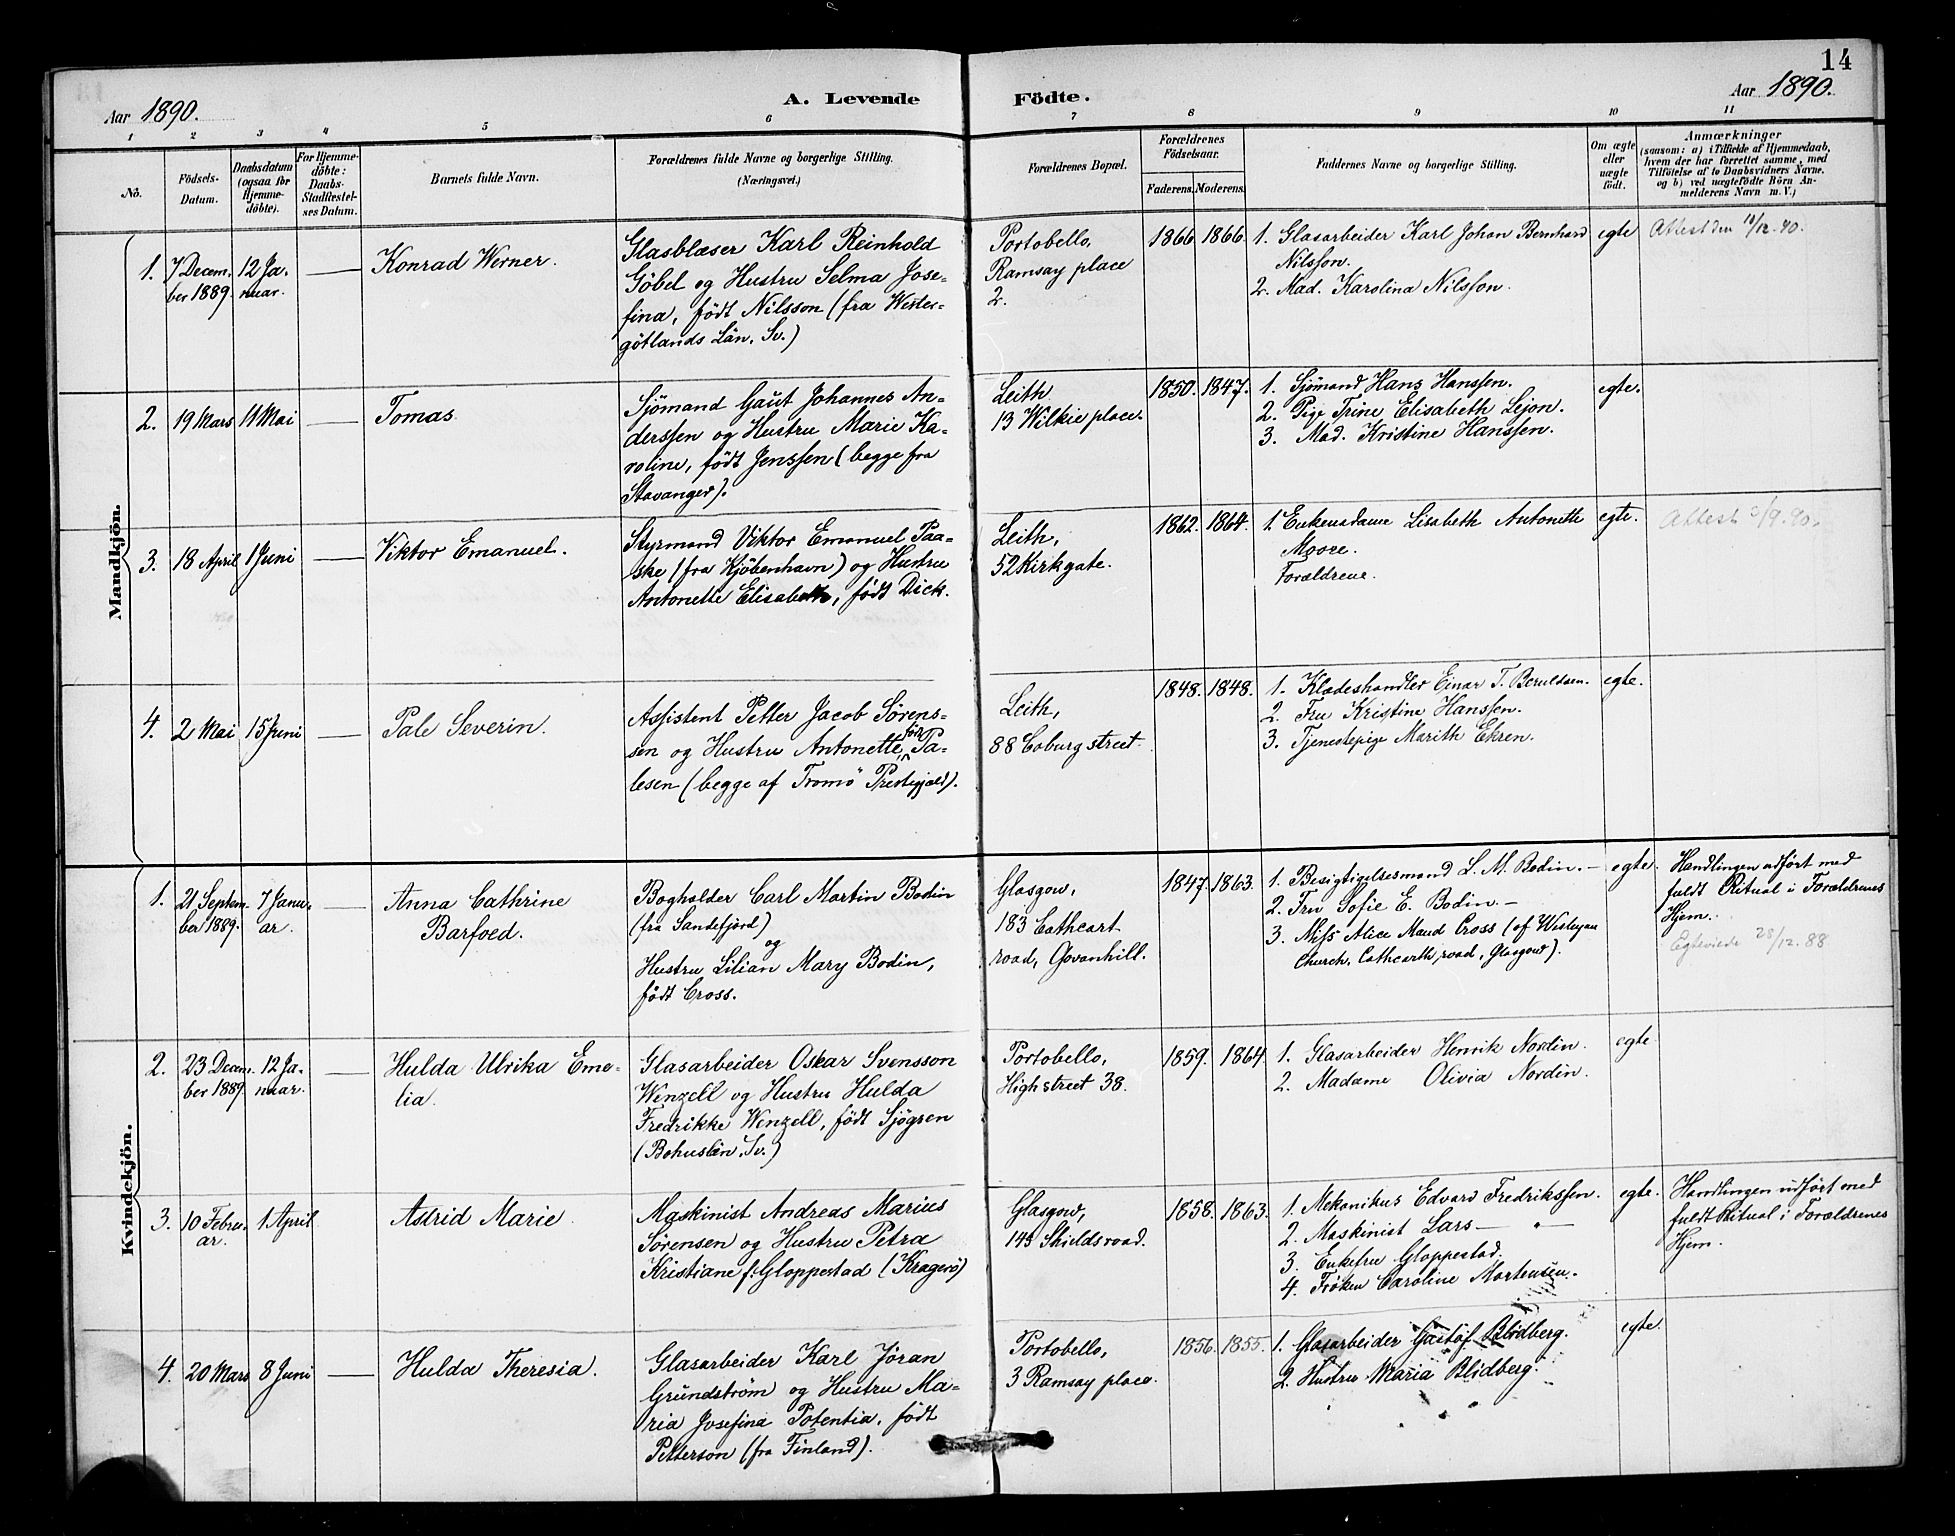 14
Aar 1890.
A. Levende Födte.
Aar 1890.
1 2 3 4 5 6 7 8 9 10 11
No.
Födsels-
Datum.
Daabsdatum
(ogsaa for
Hjemme-
döbte).
For Hjemme-
döbte:
Daabs-
Stadfæstel-
ses Datum.
Barnets fulde Navn.
Forældrenes fulde Navne og borgerlige Stilling.
(Næringsvei.)
Forældrenes Bopæl.
Forældrenes
Födselsaar.
Faderens. Moderens.
Faddernes Navne og borgerlige Stilling.
Om ægte
eller
uægte
födt.
Anmærkninger
(saasom: a) i Tilfælde af Hjemmedaab,
hvem der har forrettet samme, med
Tilföielse af to Daabsvidners Navne,
og b) ved uægtefödte Börn An-
melderens Navn m. V.)
Mandkjön.
1.
7 Decem-
ber 1889.
12 Ja-
nuar.
Konrad Werner.
Glasblæser Karl Reinhold
Göbel og Hustru Selma Jose-
fina, født Nilsson (fra Wester-
götlands Län, Sv.)
Portobello,
Ramsay place
2.
1866 1866.
1. Glasarbeider Karl Johan Bernhard
Nilsson.
2. Mad. Karolina Nilsson.
egte
Attest den 18/12.90.
2.
19 Mars
11 Mai
Tomas
Sjömand Gaut Johannes An-
derssen og Hustru Marie Ka-
roline, født Jenssen (begge fra
Stavanger).
Leith
13 Wilkie place.
1850. 1847.
1. Sjömand Hans Hanssen.
2. Pige Trine Elisabeth Lejon.
3. Mad. Kristine Hanssen.
egte.
3.
18 April
1 Juni
Viktor Emanuel.
Styrmand Viktor Emanuel Paa-
ske (fra Kjöbenhavn) og Hustru
Antonette Elisabeth, født Dick.
Leith,
52 Kirkgate.
1862. 1864.
1. Enkensdame Lisabeth Antonette
Moore.
Forældrene.
egte.
Attest /9.90.
4.
2 Mai
15 Juni
Pale Severin.
Assistent Petter Jacob Sørens-
sen og Hustru Antonette, født Pa-
lesen (begge af Tromö Prestegjeld).
Leith,
88 Coburg street.
1848. 1848.
1. Klædeshandler Einar T. Beruldsen.
2. Fru Kristine Hanssen.
3. Tjenestepige Marith Ekren.
egte.
Kvindekjön.
1.
21 Septem-
ber 1889.
7 Janu-
ar.
Anna Cathrine
Barfoed.
Bogholder Carl Martin Bodin
(fra Sandefjord)
og
Hustru Lilian Mary Bodin,
født Cross.
Glasgow,
183 Cathcart
road, Govanhill.
1847. 1863.
1. Besigtigelsesmand L. M. Bodin. —
2. Fru Sofie E. Bodin. —
3. Miss Alice Maud Cross (of Wesleyan
Church, Cathcarth road, Glasgow).
egte.
Handlingen udført med
fuldt Ritual i Forældrenes
Hjem.
Egteviede 28/12.88
2.
23 Decem-
ber 1889.
12 Ja-
nuar.
Hulda Ulrika Eme-
lia.
Glasarbeider Oskar Svensson
Wenzell og Hustru Hulda
Fredrikke Wenzell, født Sjögren
(Bohuslän, Sv.)
Portobello,
Highstreet 38.
1859. 1864.
1. Glasarbeider Henrik Nordin.
2. Madame Olivia Nordin.
egte
3.
10 Febru-
ar.
1 April
Astrid Marie
Maskinist Andreas Marius
Sørensen og Hustru Petra
Kristiane f. Gloppestad (Kragerö)
Glasgow,
145 Shieldsroad.
1858. 1863.
1. Mekanikus Edvard Fredrikssen.
2. Maskinist Lars — " —
3. Enkefru Gloppestad.
4. Frøken Caroline Mortensen.
egte.
Handlingen udført med
fuldt Ritual i Forældrenes
Hjem.
4.
20 Mars
8 Juni
Hulda Theresia.
Glasarbeider Karl Jöran
Grundström og Hustru Ma-
ria Josefina Potentia, født
Petterson (fra Finland).
Portobello,
3 Ramsay place.
1856. 1855.
1. Glasarbeider Gustaf Blidberg.
2. Hustru Maria Blidberg.
egte.